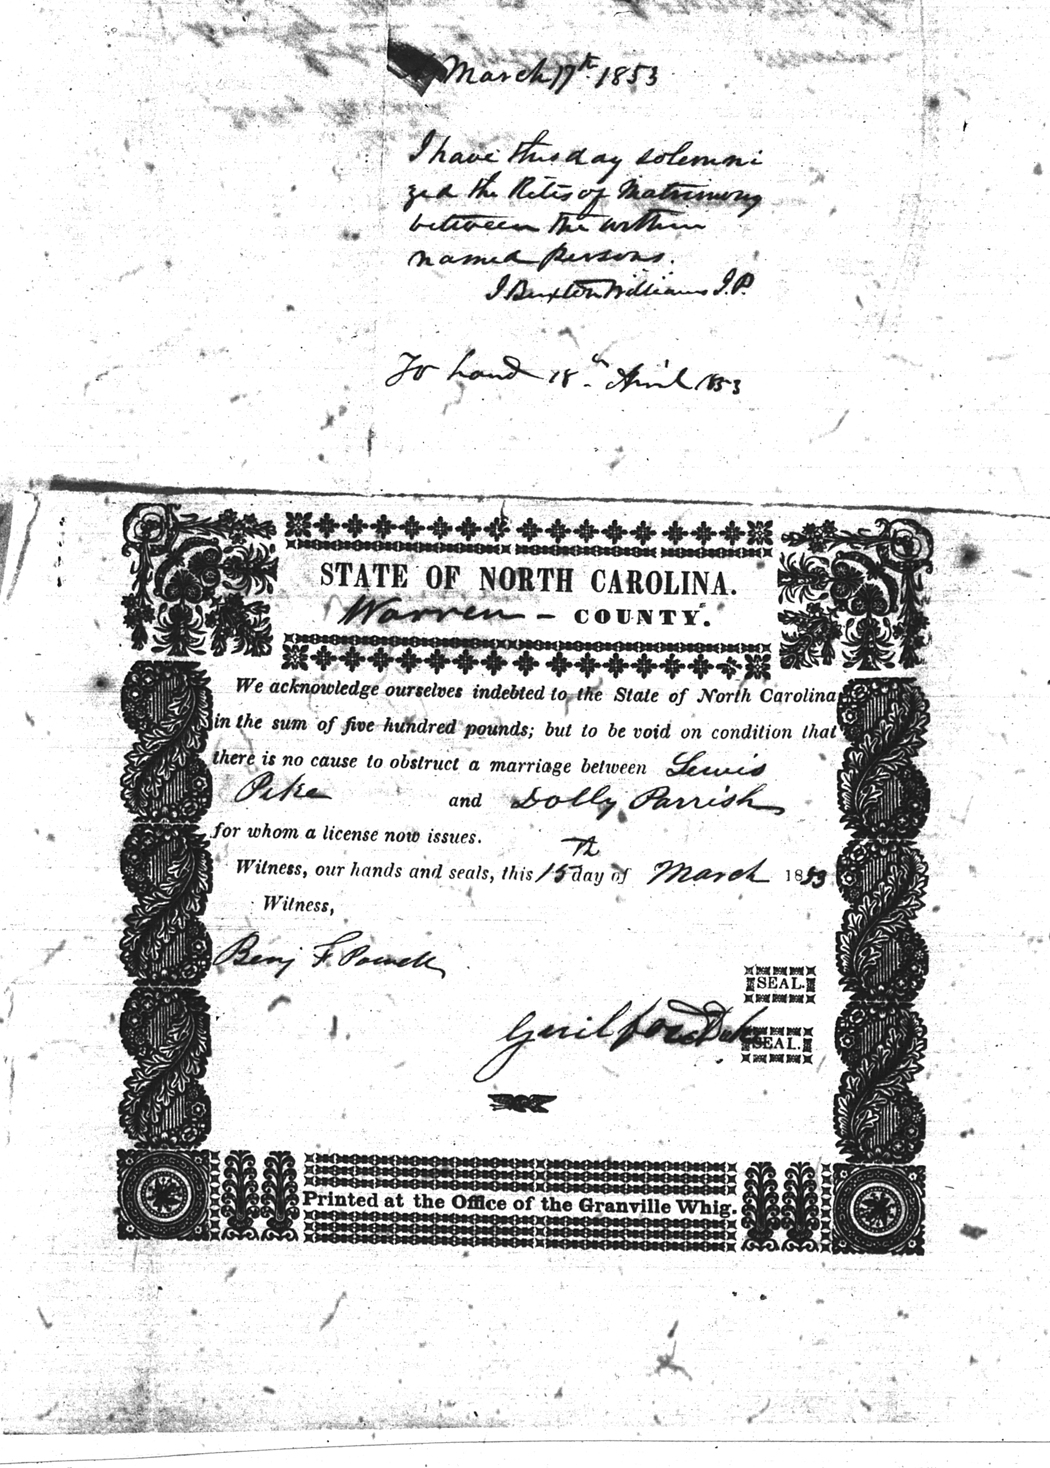 March 17th 1853
I have this day solemni
zed the Rites of Matrimony
between the within
named persons.
J Buxton Williams J.P.
To hand 18th April 1853
STATE OF NORTH CAROLINA.
Warren - COUNTY.
We acknowledge ourselves indebted to the State of North Carolina
in the sum of five hundred pounds; but to be void on condition that
there is no cause to obstruct a marriage between Lewis
Pike and Dolly Parrish
for whom a license now issues.
Witness, our hands and seals, this 15th day of March 1853
Witness,
Benj F. Powell
SEAL.
Guilford
SEAL.
Printed at the Office of the Granville Whig.